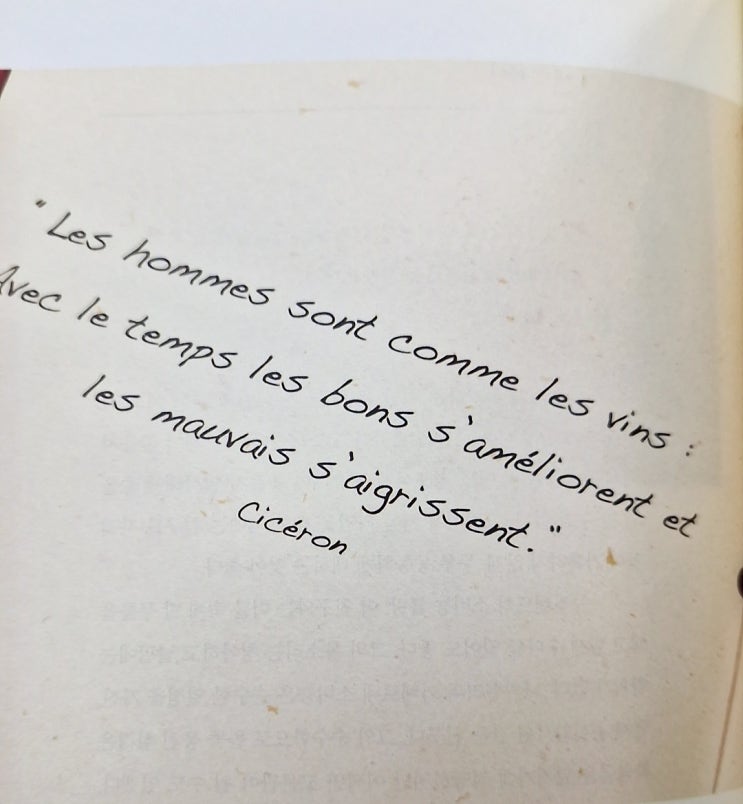 "Les hommes sont comme les vins :
Avec le temps les bons s'améliorent et
les mauvais s'aigrissent."
Cicéron